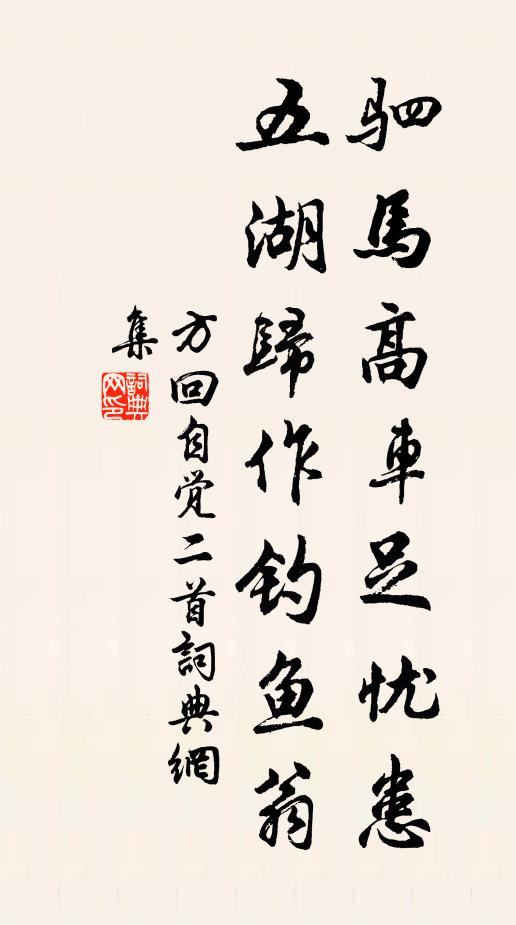 驷馬高車足忧患
五湖歸作钓鱼翁
方回自觉二首詞典網
集
詞典
网印